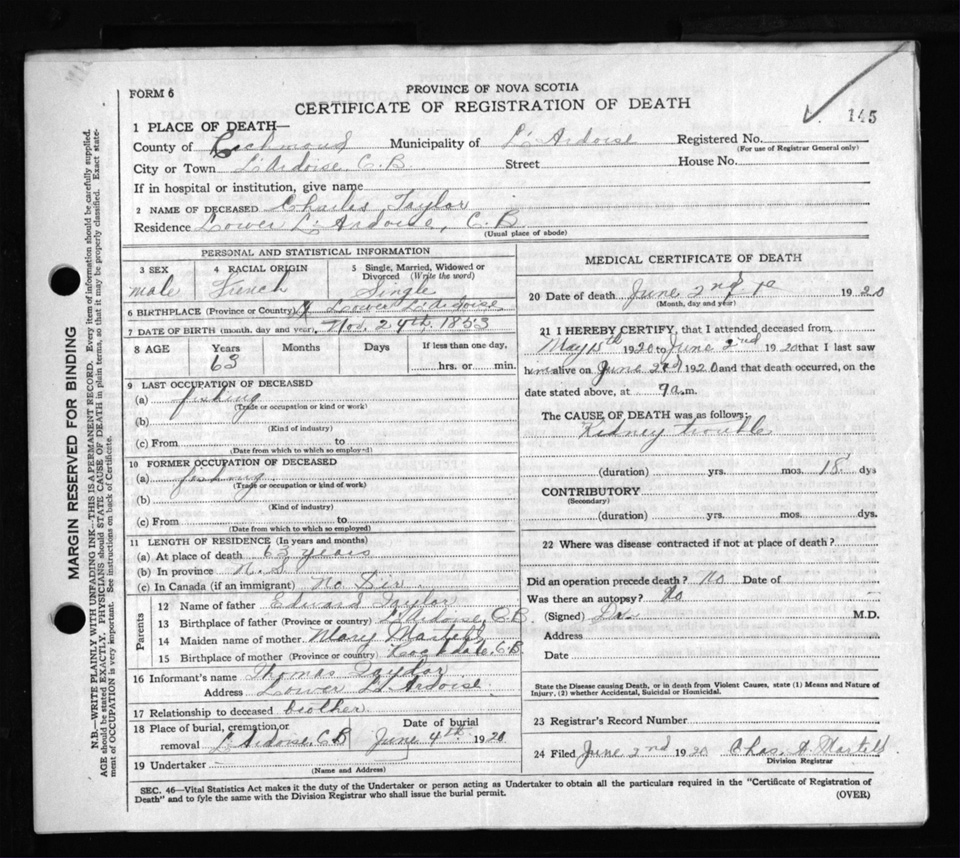 FORM 6
PROVINCE OF NOVA SCOTIA
CERTIFICATE OF REGISTRATION OF DEATH
145
1 PLACE OF DEATH—
County of Richmond Municipality of L'Ardoise Registered No.
(For use of Registrar General only)
City or Town L'Ardoise C.B. Street House No.
If in hospital or institution, give name
2 NAME OF DECEASED Charles Taylor
Residence Lower L'Ardoise, C.B.
(Usual place of abode)
PERSONAL AND STATISTICAL INFORMATION
3 SEX male
4 RACIAL ORIGIN French
5 Single, Married, Widowed or Divorced (Write the word) Single
6 BIRTHPLACE (Province or Country) Lower L'Ardoise
7 DATE OF BIRTH (month, day and year) Nov. 24th, 1853
8 AGE Years Months Days If less than one day,
63 hrs. or min.
9 LAST OCCUPATION OF DECEASED
(a) fishing
(Trade or occupation or kind or work)
(b)
(Kind of industry)
(c) From to
(Date from which to which so employed)
10 FORMER OCCUPATION OF DECEASED
(a) fishing
(Trade or occupation or kind of work)
(b)
(Kind of industry)
(c) From to
(Date from which to which so employed)
11 LENGTH OF RESIDENCE (In years and months)
(a) At place of death 63 years
(b) In province N.S
(c) In Canada (if an immigrant) No
Parents
12 Name of father Edward Taylor
13 Birthplace of father (Province or country) L'Ardoise, C.B.
14 Maiden name of mother Mary Martell
15 Birthplace of mother (Province or country) Rockdale, C.B.
16 Informant's name Thomas Taylor
Address Lower L'Ardoise
17 Relationship to deceased brother
18 Place of burial, cremation or removal L'Ardoise C.B Date of burial June 4th 1920
19 Undertaker
(Name and Address)
MEDICAL CERTIFICATE OF DEATH
20 Date of death June 2nd 1920
(Month, day and year)
21 I HEREBY CERTIFY, that I attended deceased from
May 15th 1920 to June 2nd 1920 that I last saw
him alive on June 2nd 1920 and that death occurred, on the
date stated above, at 9 a.m.
The CAUSE OF DEATH was as follows:
Kidney trouble
(duration) yrs. mos. 18 dys
CONTRIBUTORY
(Secondary)
(duration) yrs. mos. dys.
22 Where was disease contracted if not at place of death?
Did an operation precede death? No Date of
Was there an autopsy? No
(Signed) M.D.
Address
Date
State the Disease causing Death, or in death from Violent Causes, state (1) Means and Nature of
Injury, (2) whether Accidental, Suicidal or Homicidal.
23 Registrar's Record Number
24 Filed June 2nd 1920 Chas. A Martell
Division Registrar
SEC. 46—Vital Statistics Act makes it the duty of the Undertaker or person acting as Undertaker to obtain all the particulars required in the "Certificate of Registration of
Death" and to fyle the same with the Division Registrar who shall issue the burial permit.
(OVER)
MARGIN RESERVED FOR BINDING
N.B.—WRITE PLAINLY WITH UNFADING INK—THIS IS A PERMANENT RECORD. Every item of information should be carefully supplied.
AGE should be stated EXACTLY. PHYSICIANS should STATE CAUSE OF DEATH in plain terms, so that it may be properly classified. Exact state-
ment of OCCUPATION is very important. See instructions on back of Certificate.